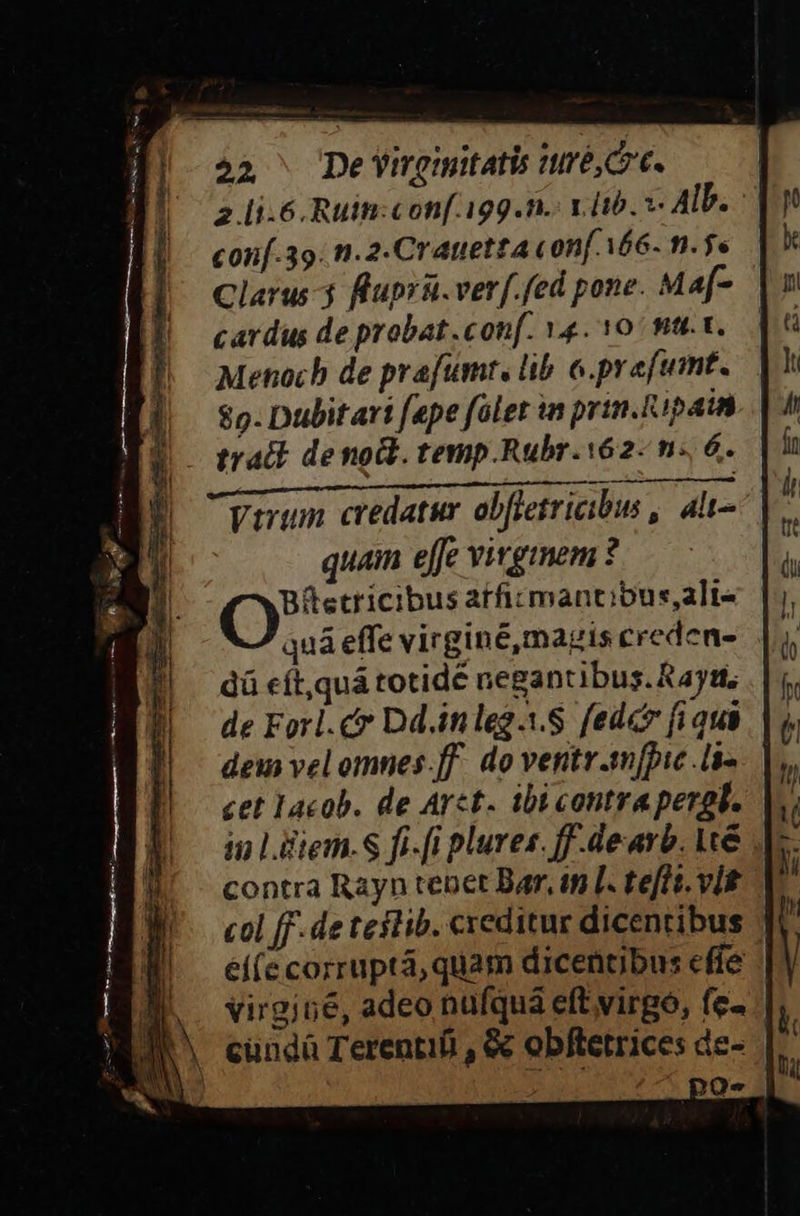 22 De virginitatis iure,&c.
2.li.6.Ruin.conſ.199.n. 1.lib.1. Alb.
conſ.39. n.2.Crauetta conſ.166. n.5.
Clarus § ſtuprū.verſ.ſed pone. Maſ-
cardus de probat.conſ. 14. 10 nu.1.
Menoch de præſumt. lib 6.præſumt.
89. Dubitari ſæpe ſolet in prin.Ripain
tract de noct. temp.Rubr.162. n. 6.
Vtrum credatur obſtetricibus , ali-
quam eſſe virginem ?
OBſtetricibus affirmantibus,ali-
quā eſſe virginē,magis creden-
dū eſt,quā totidē negantibus.Rayn.
de Forl.& Dd.in leg.1.§ ſed & ſi qui
dem vel omnes.ff. de ventr.inſpic.li-
cet Iacob. de Aret. ibi contra pergl.
in l.diem.§ ſi.ſi plures. ff.de arb. Itē
contra Rayn tenet Bar. in l. teſti. vlt
col ff.de teſtib. creditur dicentibus
eſſe corruptā, quam dicentibus eſſe
virginē, adeo nuſquā eſt virgo, ſe-
cundū Terentiū , & obſtetrices de-
po-